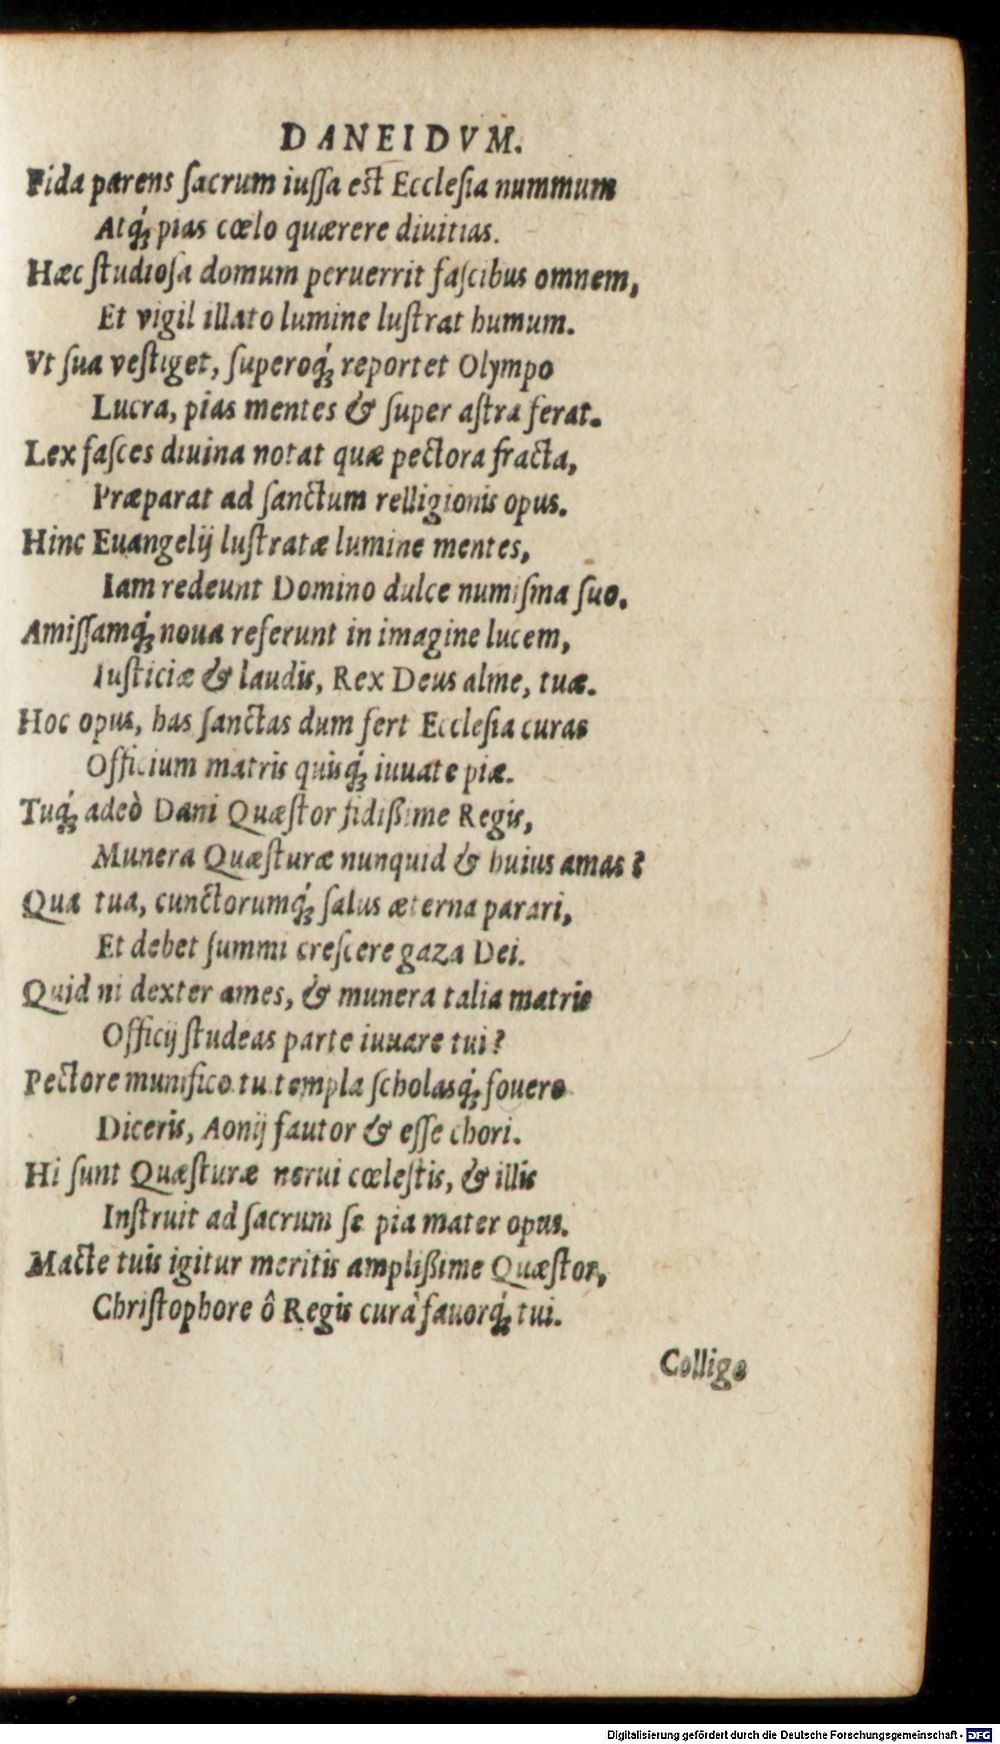 DANEIDVM.
Fida parens ſacrum iuſſa est Eccleſia nummum
Atq́; pias cœlo quærere diuitias.
Hæc ſtudioſa domum peruerrit faſcibus omnem,
Et vigil illato lumine luſtrat humum.
Vt ſua veſtiget, ſuperoq́; reportet Olympo
Lucra, pias mentes & ſuper aſtra ferat.
Lex faſces diuina notat quæ pectora fracta,
Præparat ad ſanctum relligionis opus.
Hinc Euangelij luſtratæ lumine mentes,
Iam redeunt Domino dulce numiſma ſuo.
Amiſſamq́; noua referunt in imagine lucem,
Iuſticiæ & laudis, Rex Deus alme, tuæ.
Hoc opus, has ſanctas dum fert Eccleſia curas
Officium matris quisq́; iuuate piæ.
Tuq́; adeò Dani Quæſtor fidißime Regis,
Munera Quæſturæ nunquid & huius amas?
Qua tua, cunctorumq́; ſalus æterna parari,
Et debet ſummi creſcere gaza Dei.
Quid ni dexter ames, & munera talia matris
Officij ſtudeas parte iuuare tui?
Pectore munifico tu templa ſcholasq́; fouere
Diceris, Aonij fautor & eſſe chori.
Hi ſunt Quæſturæ nerui cœleſtis, & illis
Inſtruit ad ſacrum ſe pia mater opus.
Macte tuis igitur meritis amplißime Quæſtor,
Chriſtophore ô Regis cura fauorq́; tui.
Collige
Digitalisierung gefördert durch die Deutsche Forschungsgemeinschaft - DFG